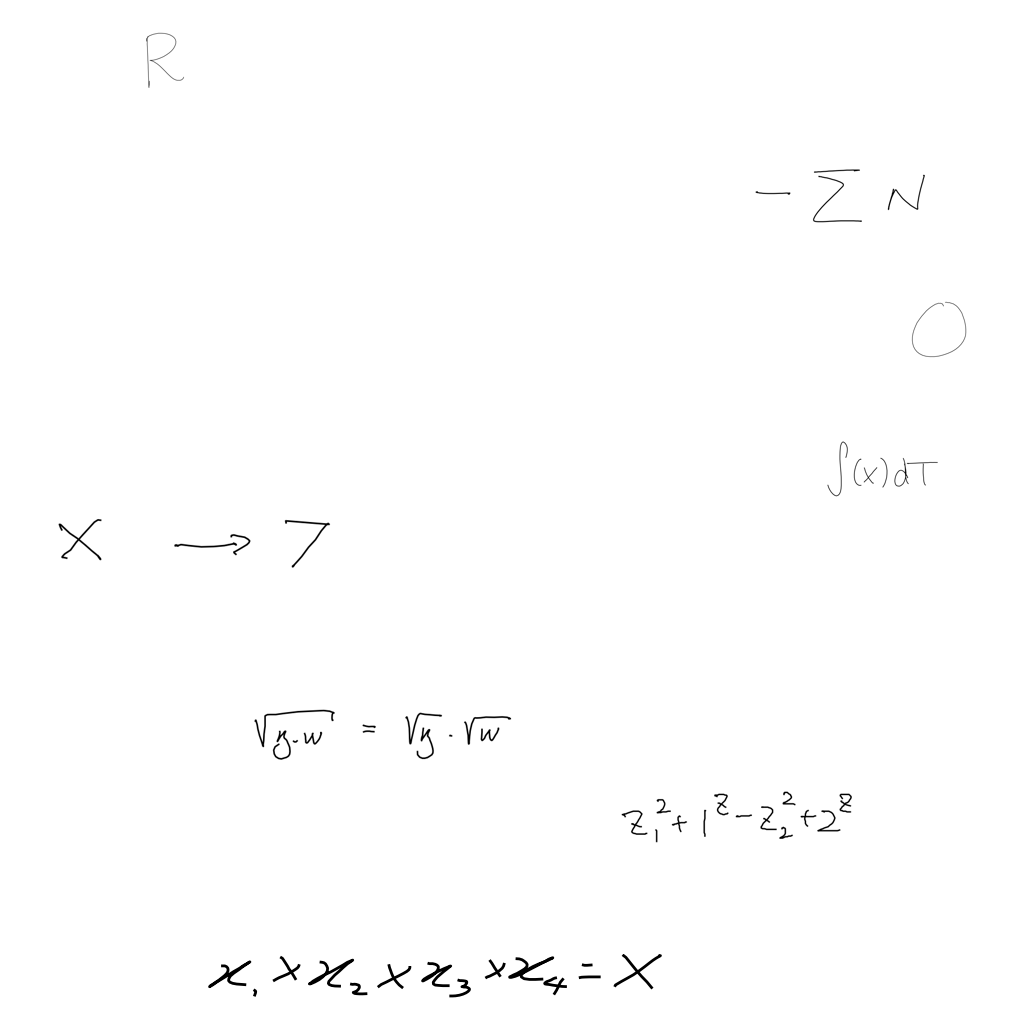 R
− ∑ N
O
∫(x)dT
X → 7
√(y·w) = √y · √w
z₁² + 1^z − z₂² + 2^z
x₁ × x₂ × x₃ × x₄ = X